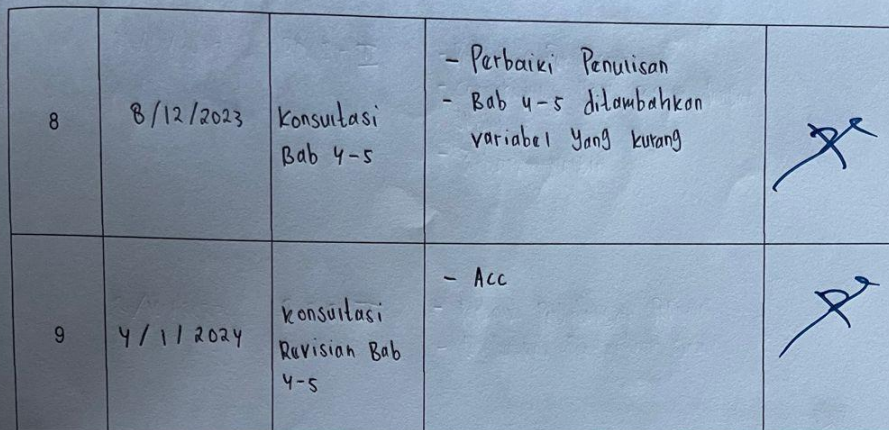 8
8/12/2023
Konsultasi
Bab 4-5
- Perbaiki Penulisan
- Bab 4-5 ditambahkan
variabel yang kurang
9
4/1/2024
Konsultasi
Revisian Bab
4-5
- Acc